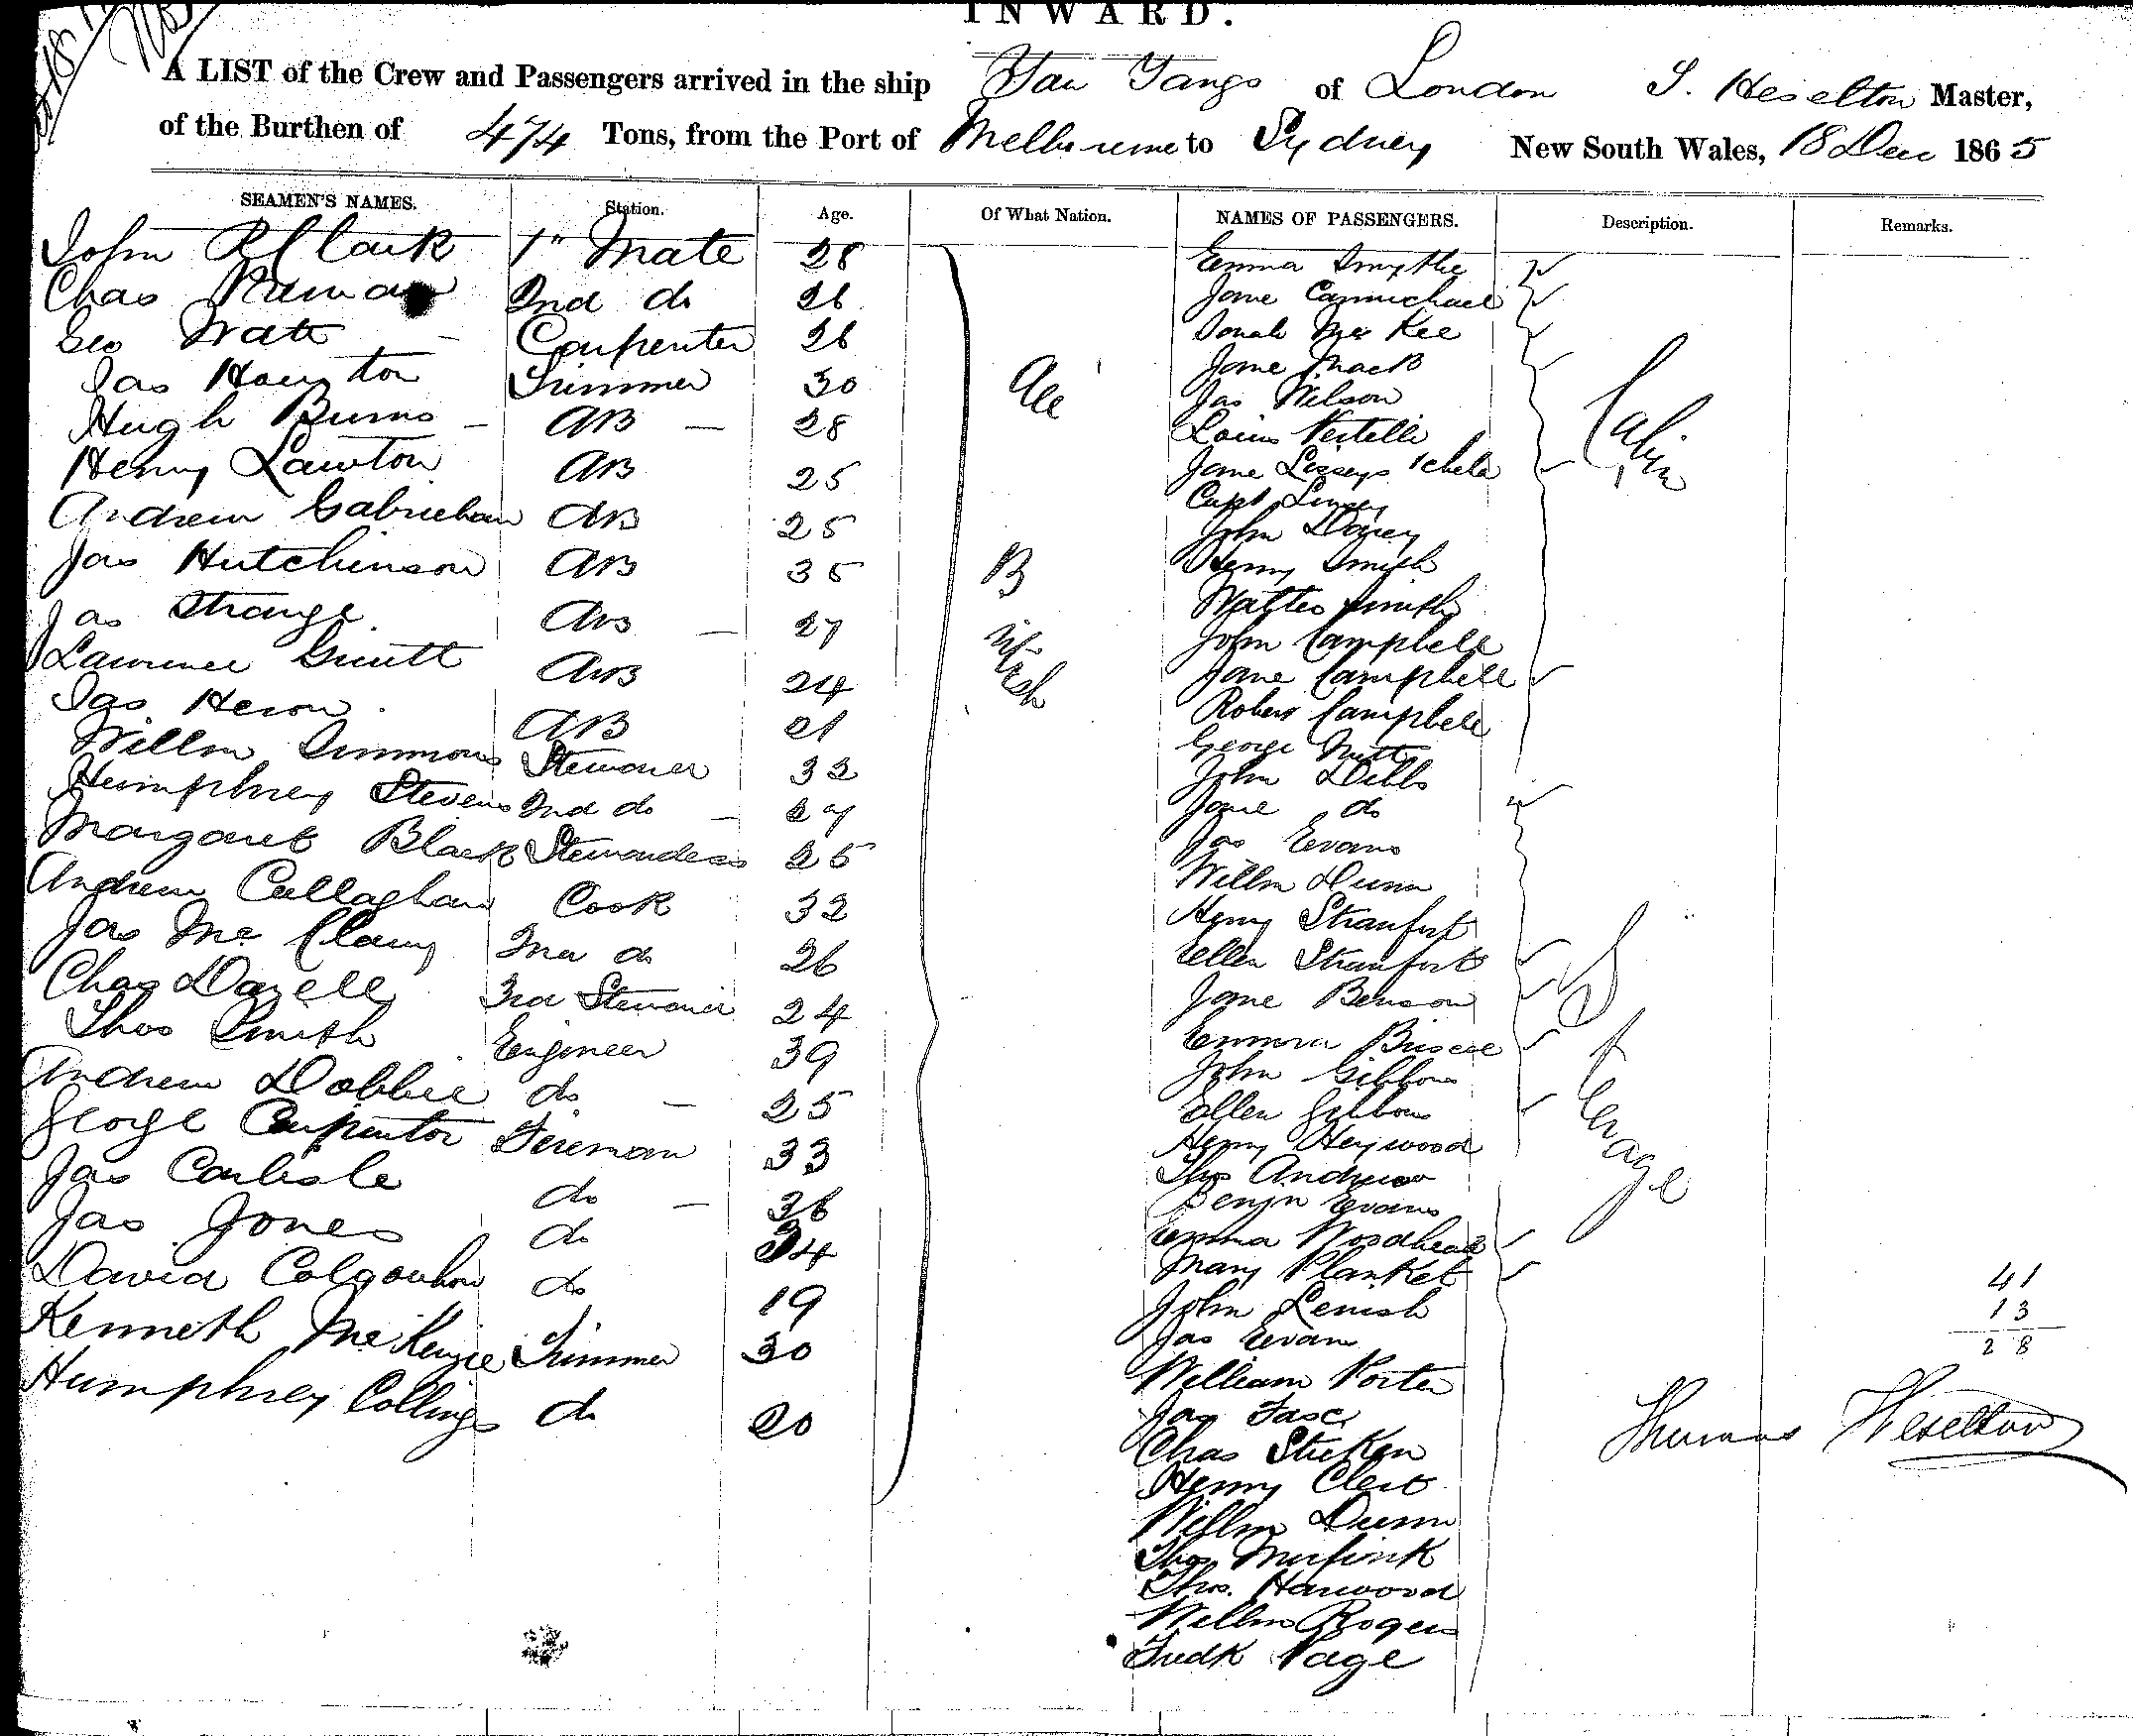 INWARD.
A LIST of the Crew and Passengers arrived in the ship You Yangs of London T. Heselton Master,
of the Burthen of 474 Tons, from the Port of Melbourne to Sydney New South Wales, 18 Dec 1865
SEAMEN'S NAMES. Station. Age. Of What Nation. NAMES OF PASSENGERS. Description. Remarks.
John R Clark 1st Mate 28
Chas 2nd do 26
Geo Watt Carpenter 26
Jas Houston Trimmer 30
Hugh Burns AB 28
Henry Lawton AB 25
Andrew AB 25
Jas Hutchinson AB 35
Jas Strange AB 27
Lawrence AB 24
Jas Heron AB 21
Willm Simmons Steward 32
Humphrey Stevens 2nd do 27
Margaret Black Stewardess 25
Andrew Callaghan Cook 32
Jas Mc Clany 2nd do 26
Chas Dazell 3rd Steward 24
Thos Smith Engineer 39
Andrew Dobbie do 25
George Carpenter Fireman 33
Jas Carlisle do 36
Jas Jones do 34
David Colqouhon do 19
Kenneth McKenzie Trimmer 30
Humphrey Collings do 20
All British
Emma Smythe
Jane Carmichael
Sarah Mc Kee
Jane Mack
Jas Wilson
Louis Vertelli
Jane Lissey 1 child
Capt
John Davey
Henry Smith
Walter Smith
John Campbell
Jane Campbell
Robert Campbell
George Nutt
John Dibbs
Jane do
Jas Evans
Willm Dunn
Henry Stranfort
Ellen Stranfort
Jane Benson
Emma Briscoe
John Gibbons
Ellen Gibbons
Henry Heywood
Thos Andrew
Benjn Evans
Emma Woodhead
Mary Planket
John Lenish
Jas Evans
William Porter
Jas
Chas
Henry
Willm Dunn
Thos
Thos. Harwood
Willm Rogers
Fredk Page
Cabin
Steerage
41
13
28
Thomas Heselton